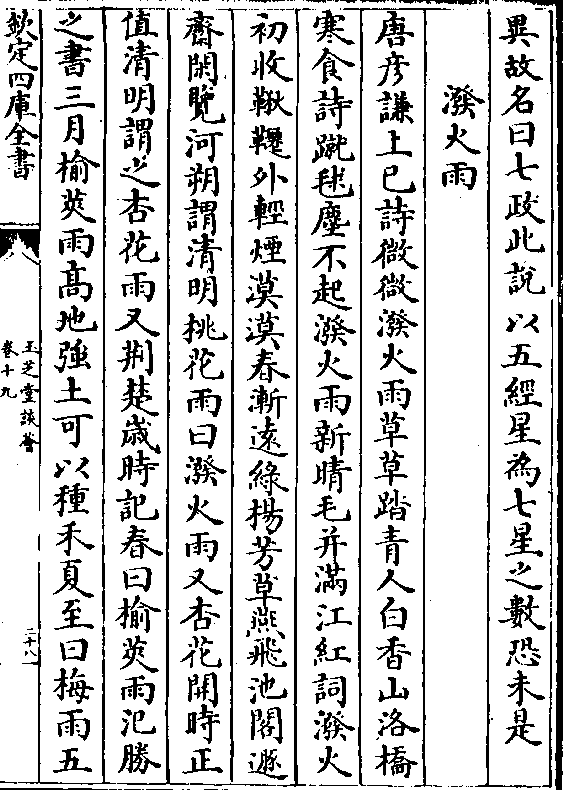 異故名曰七政此說以五經星為七星之數恐未是
潑火雨
唐彦謙上巳詩微微潑火雨草草踏青人白香山洛橋
寒食詩蹴毬塵不起潑火雨新晴毛并滿江紅詞潑火
初收鞦韆外輕煙漠漠春漸遠緑楊芳草燕飛池閣遯
齋閑覽河朔謂清明桃花雨曰潑火雨又杏花開時正
值清明謂之杏花雨又荆楚歲時記春曰榆莢雨氾勝
之書三月榆莢雨髙地強土可以種禾夏至曰梅雨五
欽定四庫全書
玉芝堂談薈
卷十九
二十八